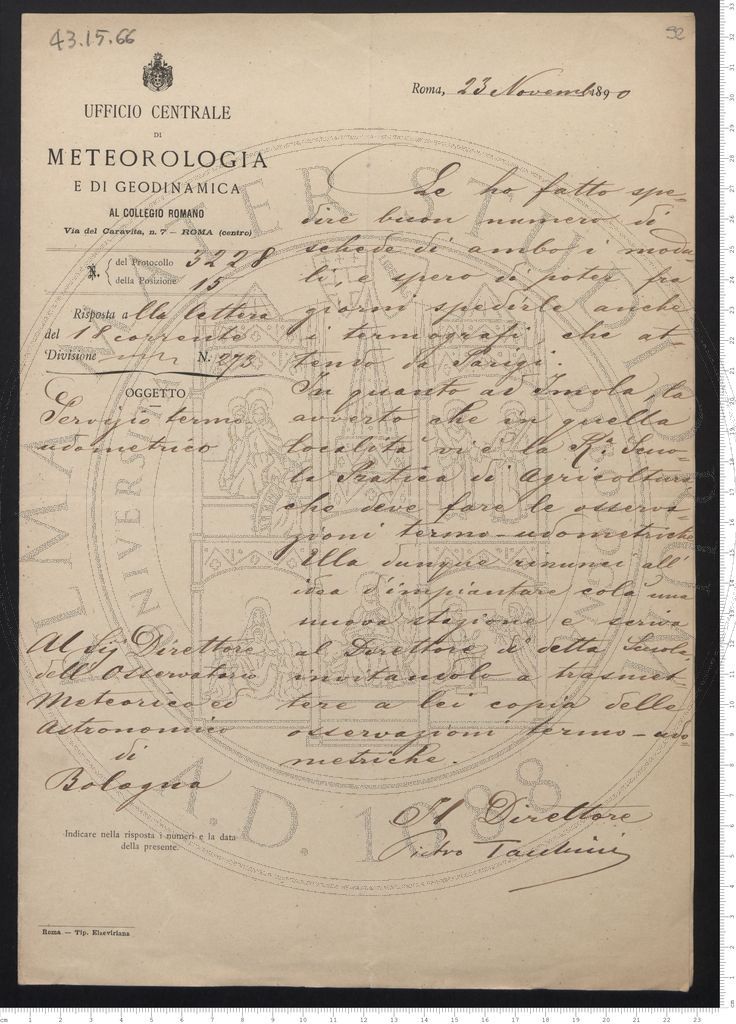 43.15.66
92
UFFICIO CENTRALE
DI
METEOROLOGIA
E DI GEODINAMICA
AL COLLEGIO ROMANO
Via del Caravita, n. 7 – ROMA (centro)
N. del Protocollo 3228
della Posizione 15
Risposta alla lettera
del 18 corrente
Divisione N. 273
OGGETTO
Servizio termo
udometrico
Al Sig Direttore
dell'Osservatorio
Meteorico ed
Astronomico
di
Bologna
Indicare nella risposta i numeri e la data
della presente.
Roma — Tip. Elzeviriana
Roma, 23 Novemb 1890
Le ho fatto spe-
dire buon numero di
schede di ambo i modu-
li, e spero di poter fra
giorni spedirle anche
i termografi, che at-
tendo da Parigi.
In quanto ad Imola, la
avverto che in quella
località vi è la Ra. Scuo-
la Pratica di Agricoltura
che deve fare le osserva-
zioni termo-udometriche
Ella dunque rinunci all'
idea d'impiantare colà una
nuova stazione e scriva
al Direttore di detta Scuola
invitandolo a trasmet-
tere a lei copia delle
osservazioni termo-udo-
metriche.
Il Direttore
Pietro Tacchini
ALMA MATER STUDIORUM
A.D. 1088